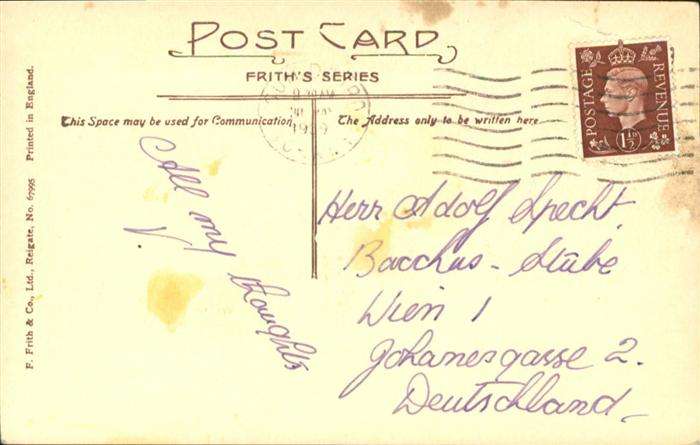 POST CARD
FRITH'S SERIES
This Space may be used for Communication.
The Address only to be written here
POSTAGE
REVENUE
1½D
All my
thoughts
Herr Adolf Specht
Bacchus-Stube
Wien 1
Johanesgasse 2.
Deutschland
F. Frith & Co., Ltd., Reigate, No. 67995 Printed in England.